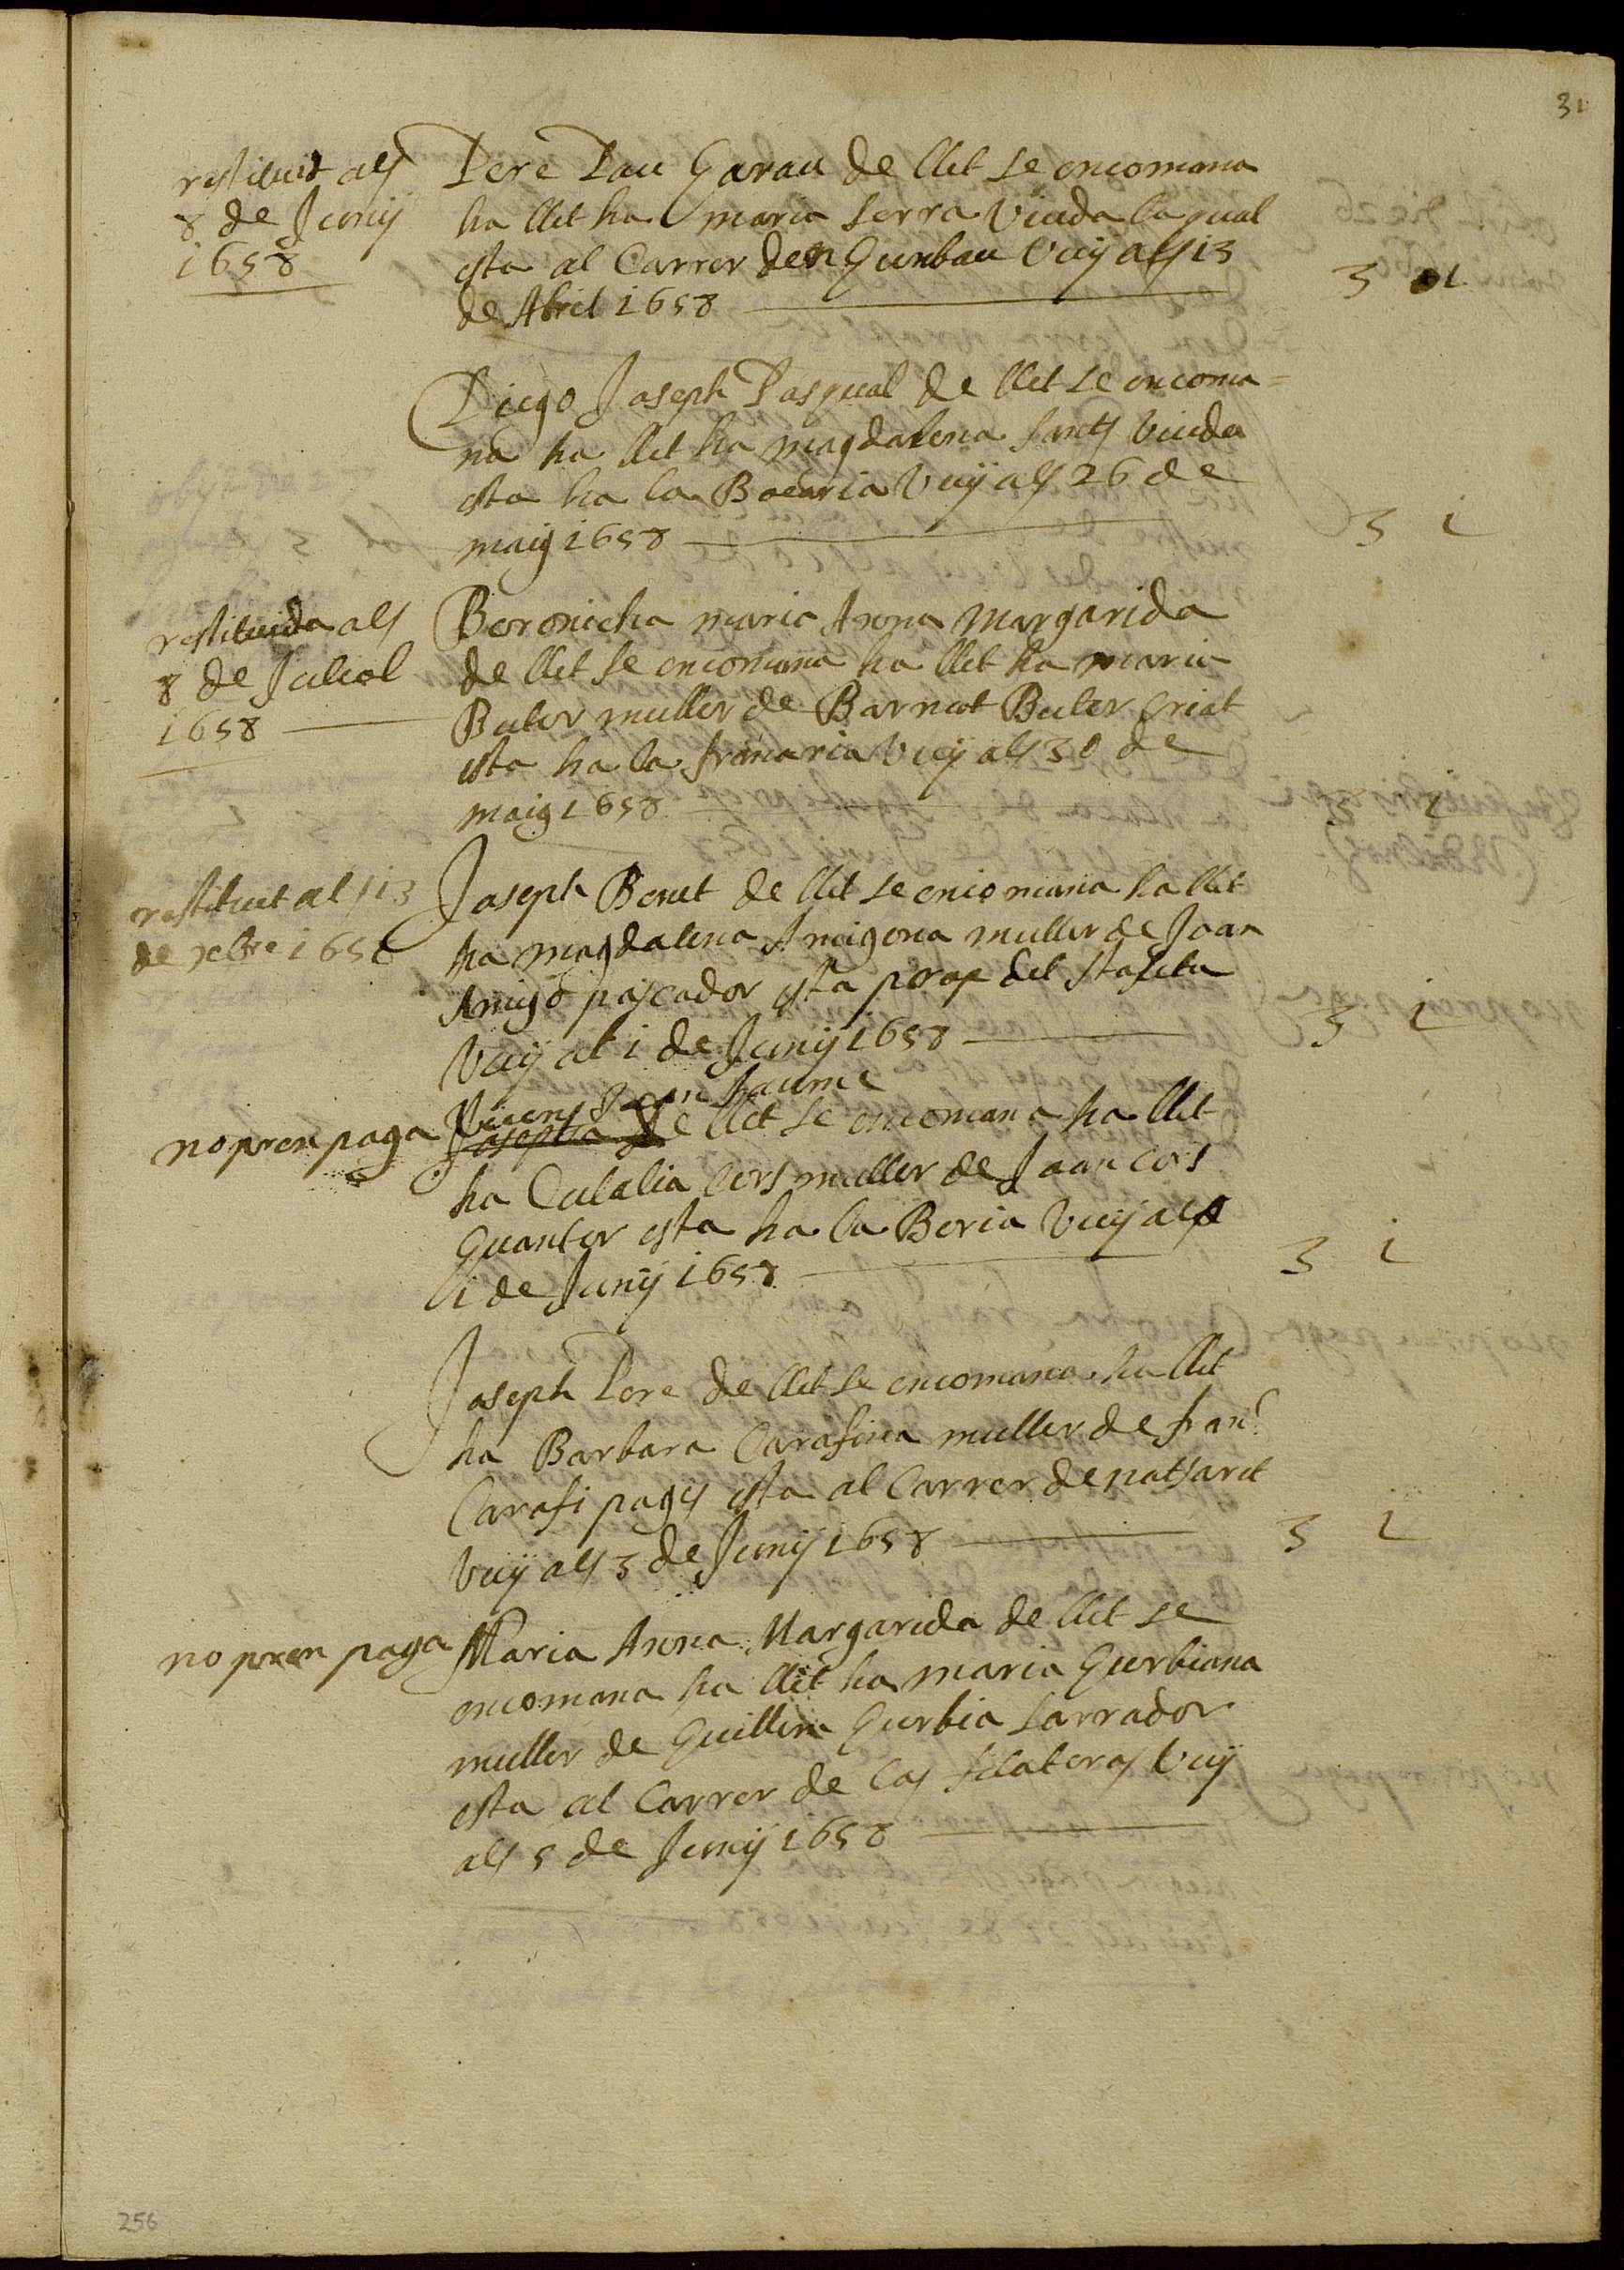 31
restituit als
8 de Juny
1658
Pere Pau Garau de llet se encomana
ha llet ha maria Serra Viuda la qual
esta al Carrer den Gunbau Vuy als 13
de Abril 1658
3 1
Diego Joseph Pasqual de llet se encoma=
na ha llet ha magdalena Sants Viuda
esta ha la Bocaria Vuy als 26 de
maig 1658
3 1
restituida als
8 de Juliol
1658
Beronicha maria Anna Margarida
de llet se encomana ha llet ha maria
Buler muller de Barnat Buler criat
esta ha la franaria Vuy als 30 de
maig 1658
3 1
restituit als 13
de xbre 1658
Joseph Benet de llet se encomana ha llet
ha magdalena Amigona muller de Joan
Amigo pascador esta prop del
Vuy al 1 de Juny 1658
3 1
no pren paga
Vicens Joan Jaume
Josepha de llet se encomana ha llet
ha Eulalia Cors muller de Joan Cors
Guanter esta ha la Boria Vuy als
1 de Juny 1658
3 1
Joseph Pere de llet se encomana ha llet
ha Barbara Carafina muller de franc
Carafi pages esta al Carrer de natsaret
Vuy als 3 de Juny 1658
3 1
no pren paga
Maria Anna Margarida de llet se
encomana ha llet ha maria Gurbiana
muller de Guillem Gurbia Sarrador
esta al Carrer de las filateras Vuy
als 5 de Juny 1658
256